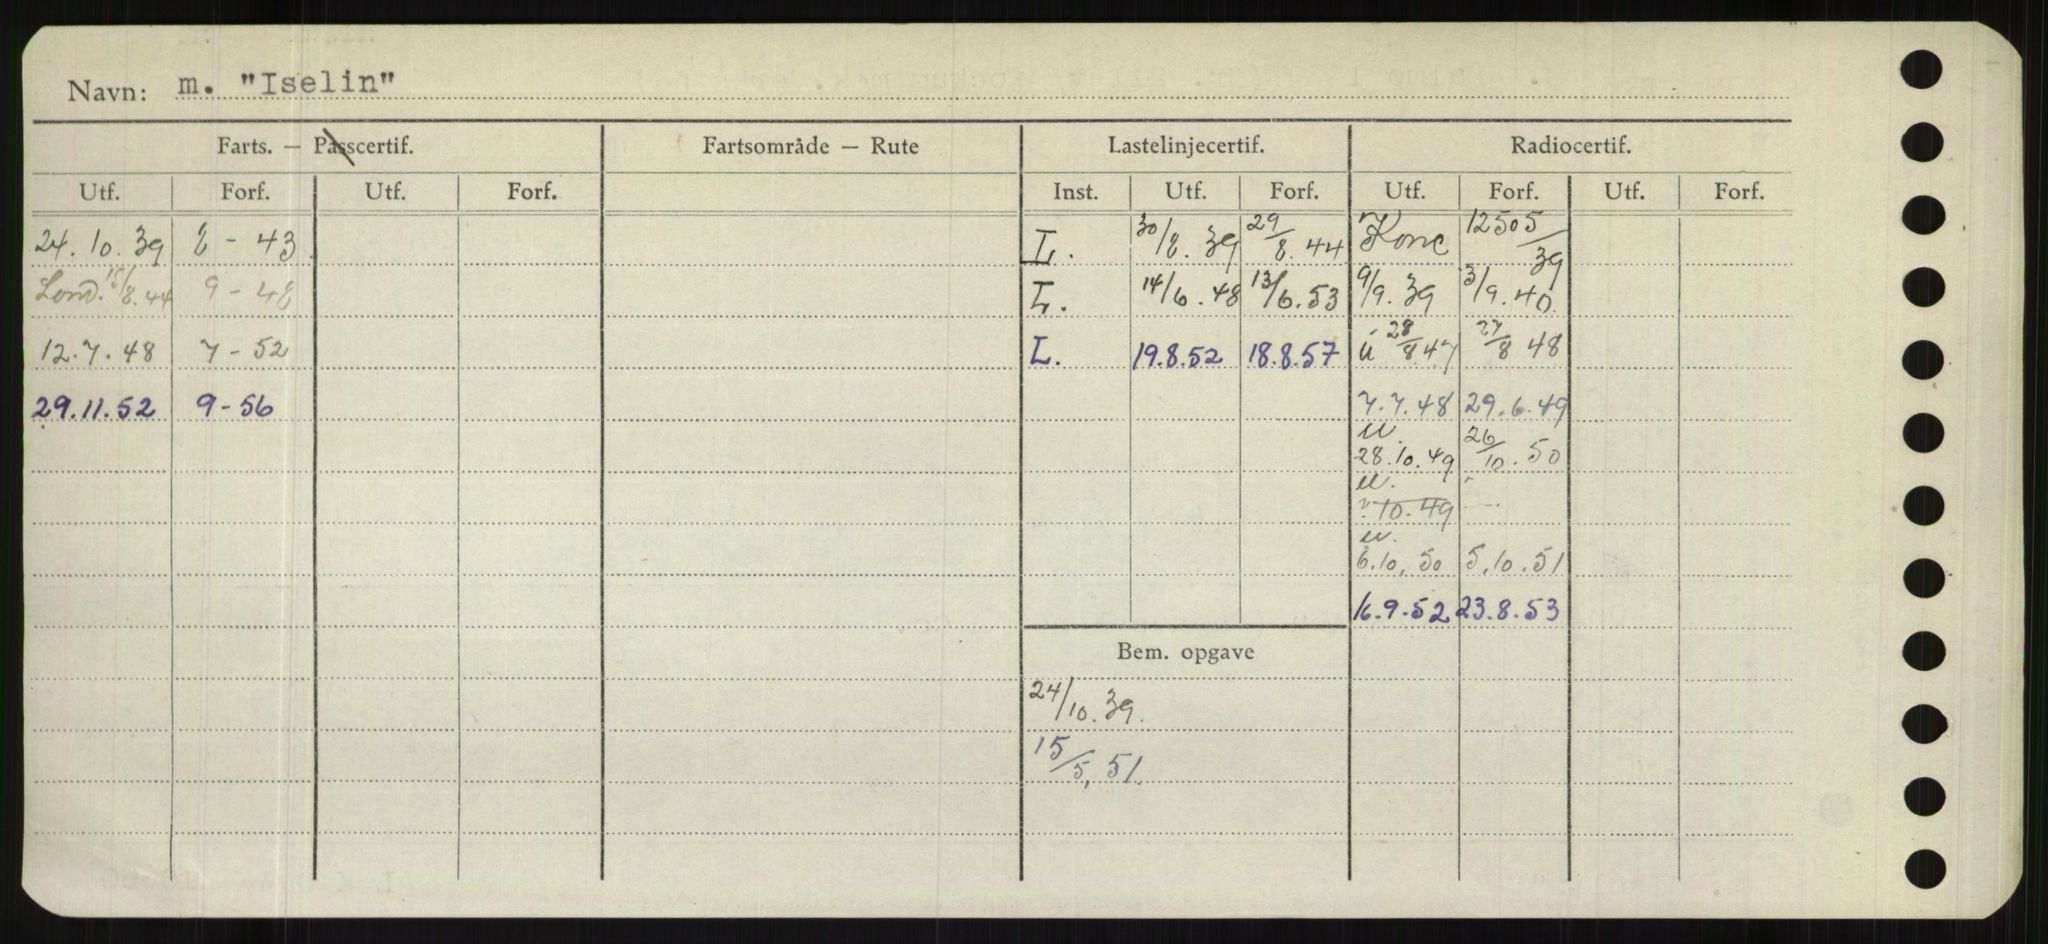 Navn: m. "Iselin"
Farts. — Passcertif. Fartsområde — Rute Lastelinjecertif. Radiocertif.
Utf. Forf. Utf. Forf. Inst. Utf. Forf. Utf. Forf. Utf. Forf.
24.10.39 8 - 43 L. 30/8.39 29/8.44 Konc 12505/39
Lond. 15/8.44 9 - 48 L. 14/6.48 13/6.53 9/9.39 3/9.40
12.7.48 7 - 52 L. 19.8.52 18.8.57 u 28/8 47 27/8 48
29.11.52 9-56 7.7.48 29.6.49
u. 28.10.49 26/10.50
u. 10.49
u. 6.10.50 5.10.51
16.9.52 23.8.53
Bem. opgave
24/10.39.
15/5.51